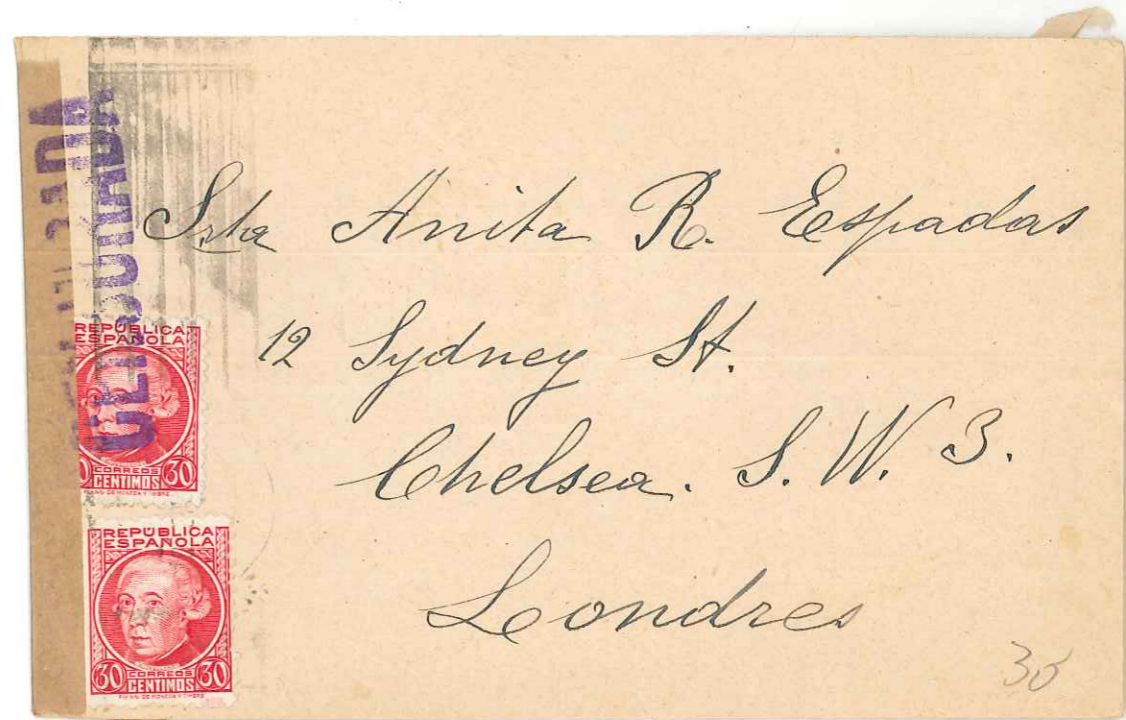 Srta Anita R. Espadas
12 Sydney St.
Chelsea. S. W. 3.
Londres
30
CENSURADA
REPÚBLICA
ESPAÑOLA
CORREOS
30 CENTIMOS 30
REPÚBLICA
ESPAÑOLA
CORREOS
30 CENTIMOS 30